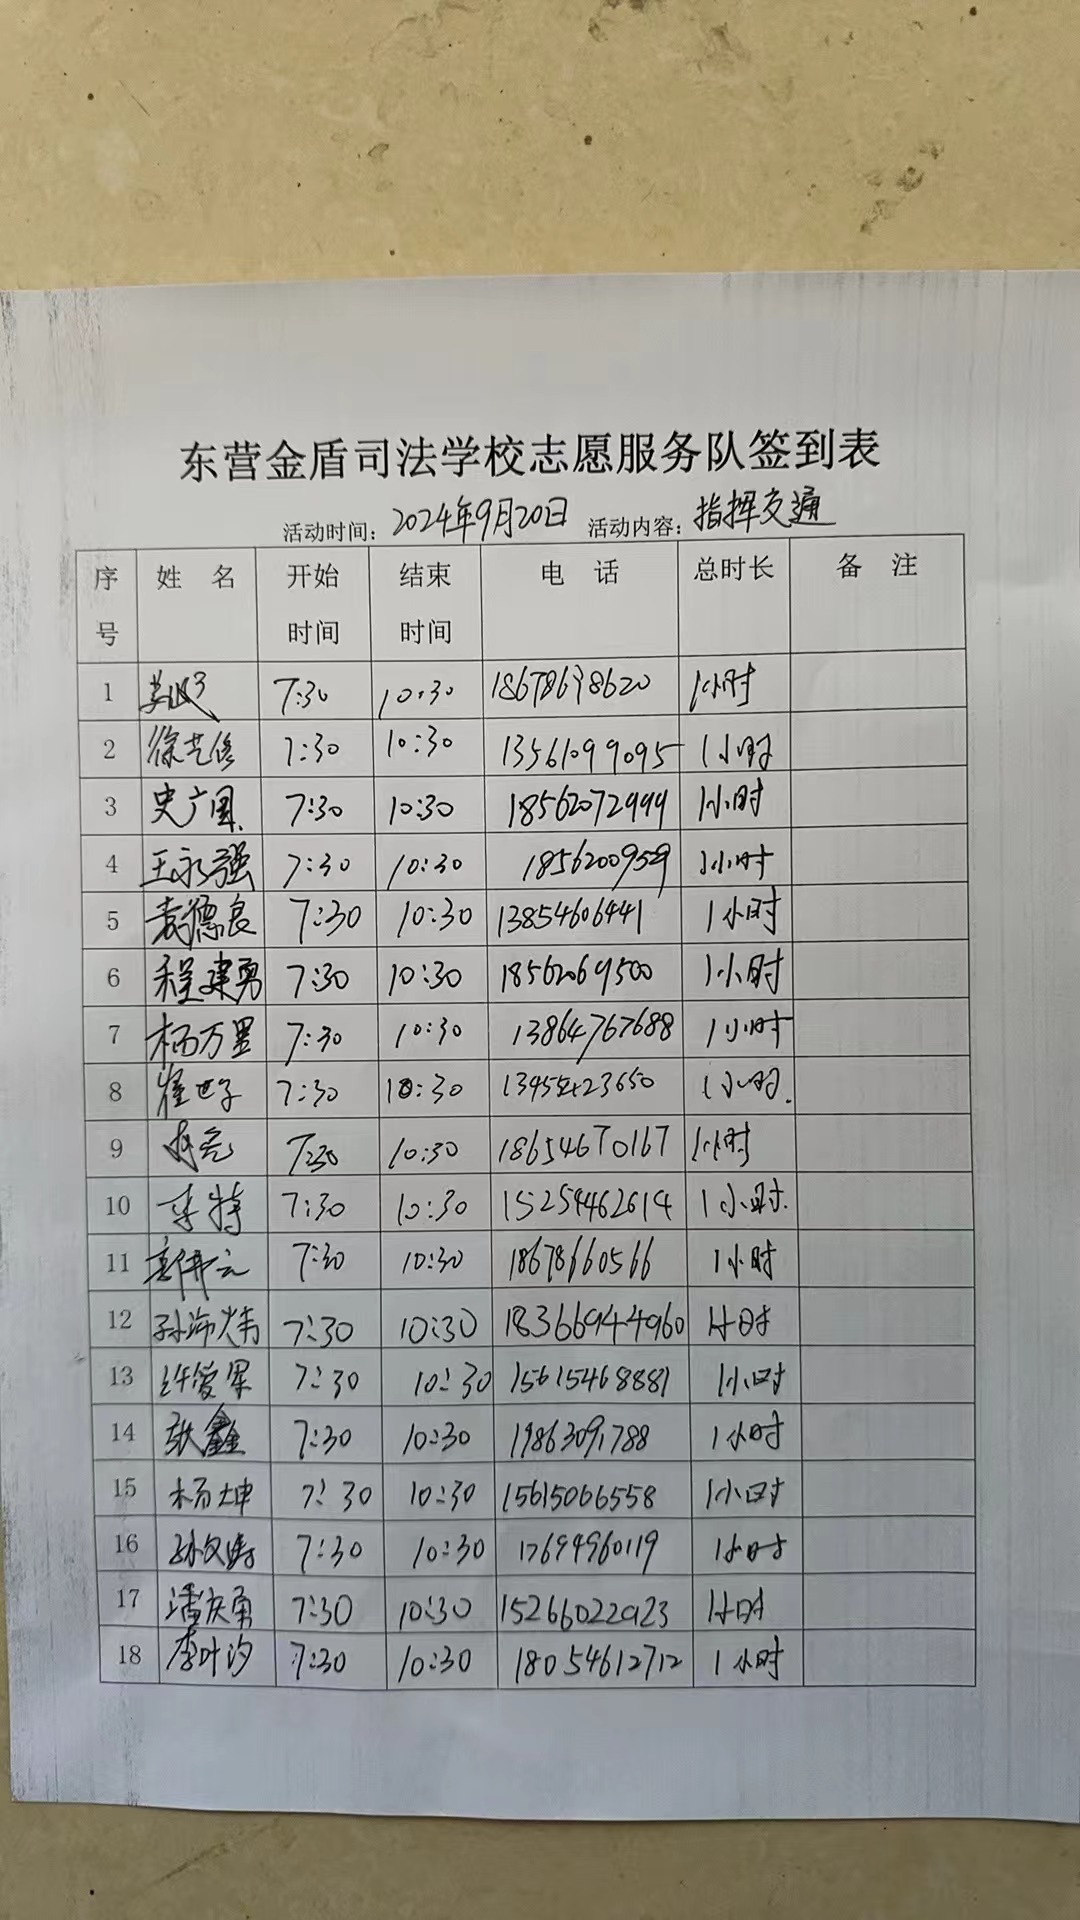 东营金盾司法学校志愿服务队签到表
活动时间: 2024年9月20日 活动内容: 指挥交通
序号 姓名 开始时间 结束时间 电话 总时长 备注
1 7:30 10:30 18678698620 1小时
2 徐艺修 7:30 10:30 13561099095 1小时
3 史广国 7:30 10:30 18562072999 1小时
4 王永强 7:30 10:30 1856200959 1小时
5 袁德良 7:30 10:30 13854606441 1小时
6 程建勇 7:30 10:30 18562069500 1小时
7 杨万里 7:30 10:30 13864767688 1小时
8 崔世子 7:30 10:30 1小时
9 7:30 10:30 18654670167 1小时
10 李特 7:30 10:30 15254462614 1小时
11 7:30 10:30 18678660566 1小时
12 孙沛炜 7:30 10:30 18366944960 1小时
13 许爱军 7:30 10:30 15615468881 1小时
14 张鑫 7:30 10:30 19863091788 1小时
15 杨坤 7:30 10:30 15615066558 1小时
16 孙文涛 7:30 10:30 17694960119 1小时
17 潘庆勇 7:30 10:30 15266022923 1小时
18 李叶汐 7:30 10:30 18054612712 1小时